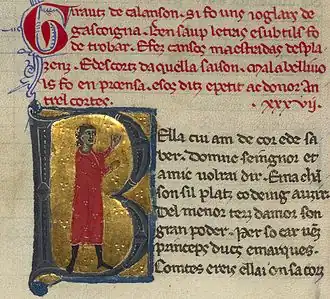 Girautz de calanson. si fo uns ioglars de
gascoigna. Ben saup letras e subtils fo
de trobar. E fez cansos maestradas despla
zenz. E descortz da quella saison. Mal abellíuo
ls fo en proensa. e sos ditz e petit ac do nor en
trels cortes. xxxvij.
Bella cui am de cor e de sa
ber. domne seingnor et
amic volrai dir. En ma chā
son sil platz co deing auzir.
Del menor terz damor son
gran poder. Per so car uēz
princeps ducs e marques.
Comtes e reis e lai on sa cor